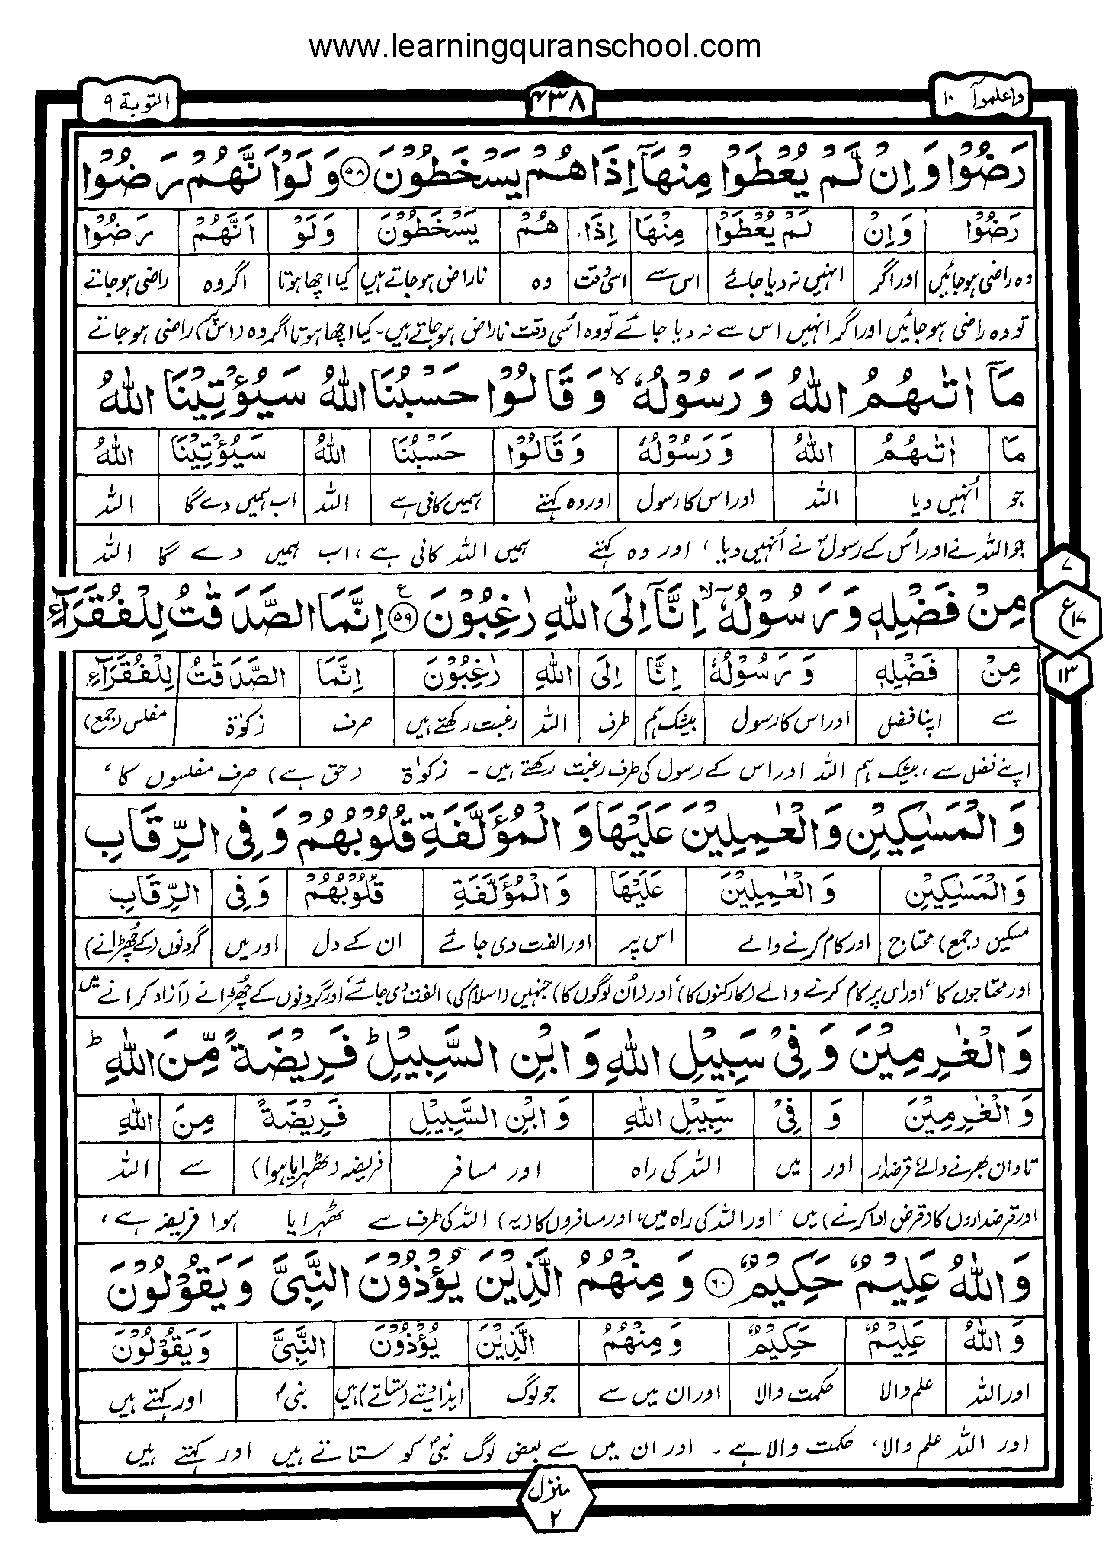 www.learningquranschool.com
واعلموآ ۱۰
۴۳۸
التوبة ۹
رَضُوْا وَ اِنْ لَّمْ يُعْطَوْا مِنْهَآ اِذَا هُمْ يَسْخَطُوْنَ ۵۸ وَ لَوْ اَنَّهُمْ رَضُوْا
رَضُوْا وَ اِنْ لَمْ يُعْطَوْا مِنْهَا اِذَا هُمْ يَسْخَطُوْنَ وَلَوْ اَنَّهُمْ رَضُوْا
وہ راضی ہوجائیں اور اگر انہیں نہ دیا جائے اس سے اسی وقت وہ ناراض ہوجاتے ہیں کیا اچھا ہوتا اگر وہ راضی ہوجاتے
تو وہ راضی ہوجائیں اور اگر انہیں اس سے نہ دیا جائے تو وہ اسی وقت ناراض ہوجاتے ہیں۔ کیا اچھا ہوتا اگر وہ (اس پر) راضی ہوجاتے
مَآ اٰتٰىهُمُ اللّٰهُ وَ رَسُوْلُهٗ ۙ وَ قَالُوْا حَسْبُنَا اللّٰهُ سَيُؤْتِيْنَا اللّٰهُ
مَا اٰتٰىهُمُ اللّٰهُ وَ رَسُوْلُهٗ وَ قَالُوْا حَسْبُنَا اللّٰهُ سَيُؤْتِيْنَا اللّٰهُ
جو اُنہیں دیا اللہ اور اس کا رسول اور وہ کہتے ہمیں کافی ہے اللہ اب ہمیں دے گا اللہ
جو اللہ نے اور اُس کے رسولؐ نے اُنہیں دیا، اور وہ کہتے ہمیں اللہ کافی ہے، اب ہمیں دے گا اللہ
مِنْ فَضْلِهٖ وَ رَسُوْلُهٗٓ ۙ اِنَّآ اِلَى اللّٰهِ رٰغِبُوْنَ ۵۹ ع اِنَّمَا الصَّدَقٰتُ لِلْفُقَرَآءِ
۷
ع ۱۷
۱۳
مِنْ فَضْلِهٖ وَ رَسُوْلُهٗ اِنَّا اِلَى اللّٰهِ رٰغِبُوْنَ اِنَّمَا الصَّدَقٰتُ لِلْفُقَرَآءِ
سے اپنا فضل اور اس کا رسول بیشک ہم طرف اللہ رغبت رکھتے ہیں صرف زکوٰۃ مفلس (جمع)
اپنے فضل سے، بیشک ہم اللہ اور اس کے رسول کی طرف رغبت رکھتے ہیں۔ زکوٰۃ (حق ہے) صرف مفلسوں کا،
وَ الْمَسٰكِيْنِ وَ الْعٰمِلِيْنَ عَلَيْهَا وَ الْمُؤَلَّفَةِ قُلُوْبُهُمْ وَ فِى الرِّقَابِ
وَ الْمَسٰكِيْنِ وَ الْعٰمِلِيْنَ عَلَيْهَا وَ الْمُؤَلَّفَةِ قُلُوْبُهُمْ وَ فِى الرِّقَابِ
مسکین (جمع) محتاج اور کام کرنے والے اس پر اور الفت دی جائے ان کے دل اور میں گردنوں (کے چھڑانے)
اور محتاجوں کا، اور اس پر کام کرنے والے (کارکنوں کا) اور (ان لوگوں کا) جنہیں (اسلام کی) الفت دی جائے اور گردنوں کے چھڑانے (آزاد کرانے میں
وَ الْغٰرِمِيْنَ وَ فِىْ سَبِيْلِ اللّٰهِ وَ ابْنِ السَّبِيْلِ ؕ فَرِيْضَةً مِّنَ اللّٰهِ ؕ
وَ الْغٰرِمِيْنَ وَ فِىْ سَبِيْلِ اللّٰهِ وَ ابْنِ السَّبِيْلِ فَرِيْضَةً مِنَ اللّٰهِ
تاوان بھرنے والے، قرضدار اور میں اللہ کی راہ اور مسافر فریضہ (ٹھہرایا ہوا) سے اللہ
اور قرضداروں کا (قرض ادا کرنے) میں، اور اللہ کی راہ میں، اور مسافروں کا (یہ) اللہ کی طرف سے ٹھہرایا ہوا فریضہ ہے،
وَ اللّٰهُ عَلِيْمٌ حَكِيْمٌ ۶۰ وَ مِنْهُمُ الَّذِيْنَ يُؤْذُوْنَ النَّبِىَّ وَ يَقُوْلُوْنَ
وَ اللّٰهُ عَلِيْمٌ حَكِيْمٌ وَ مِنْهُمُ الَّذِيْنَ يُؤْذُوْنَ النَّبِىَّ وَ يَقُوْلُوْنَ
اور اللہ علم والا حکمت والا اور ان میں سے جو لوگ ایذا دیتے (ستاتے) ہیں نبیؐ اور کہتے ہیں
اور اللہ علم والا، حکمت والا ہے۔ اور ان میں سے بعض لوگ نبیؐ کو ستاتے ہیں اور کہتے ہیں
منزل
۲